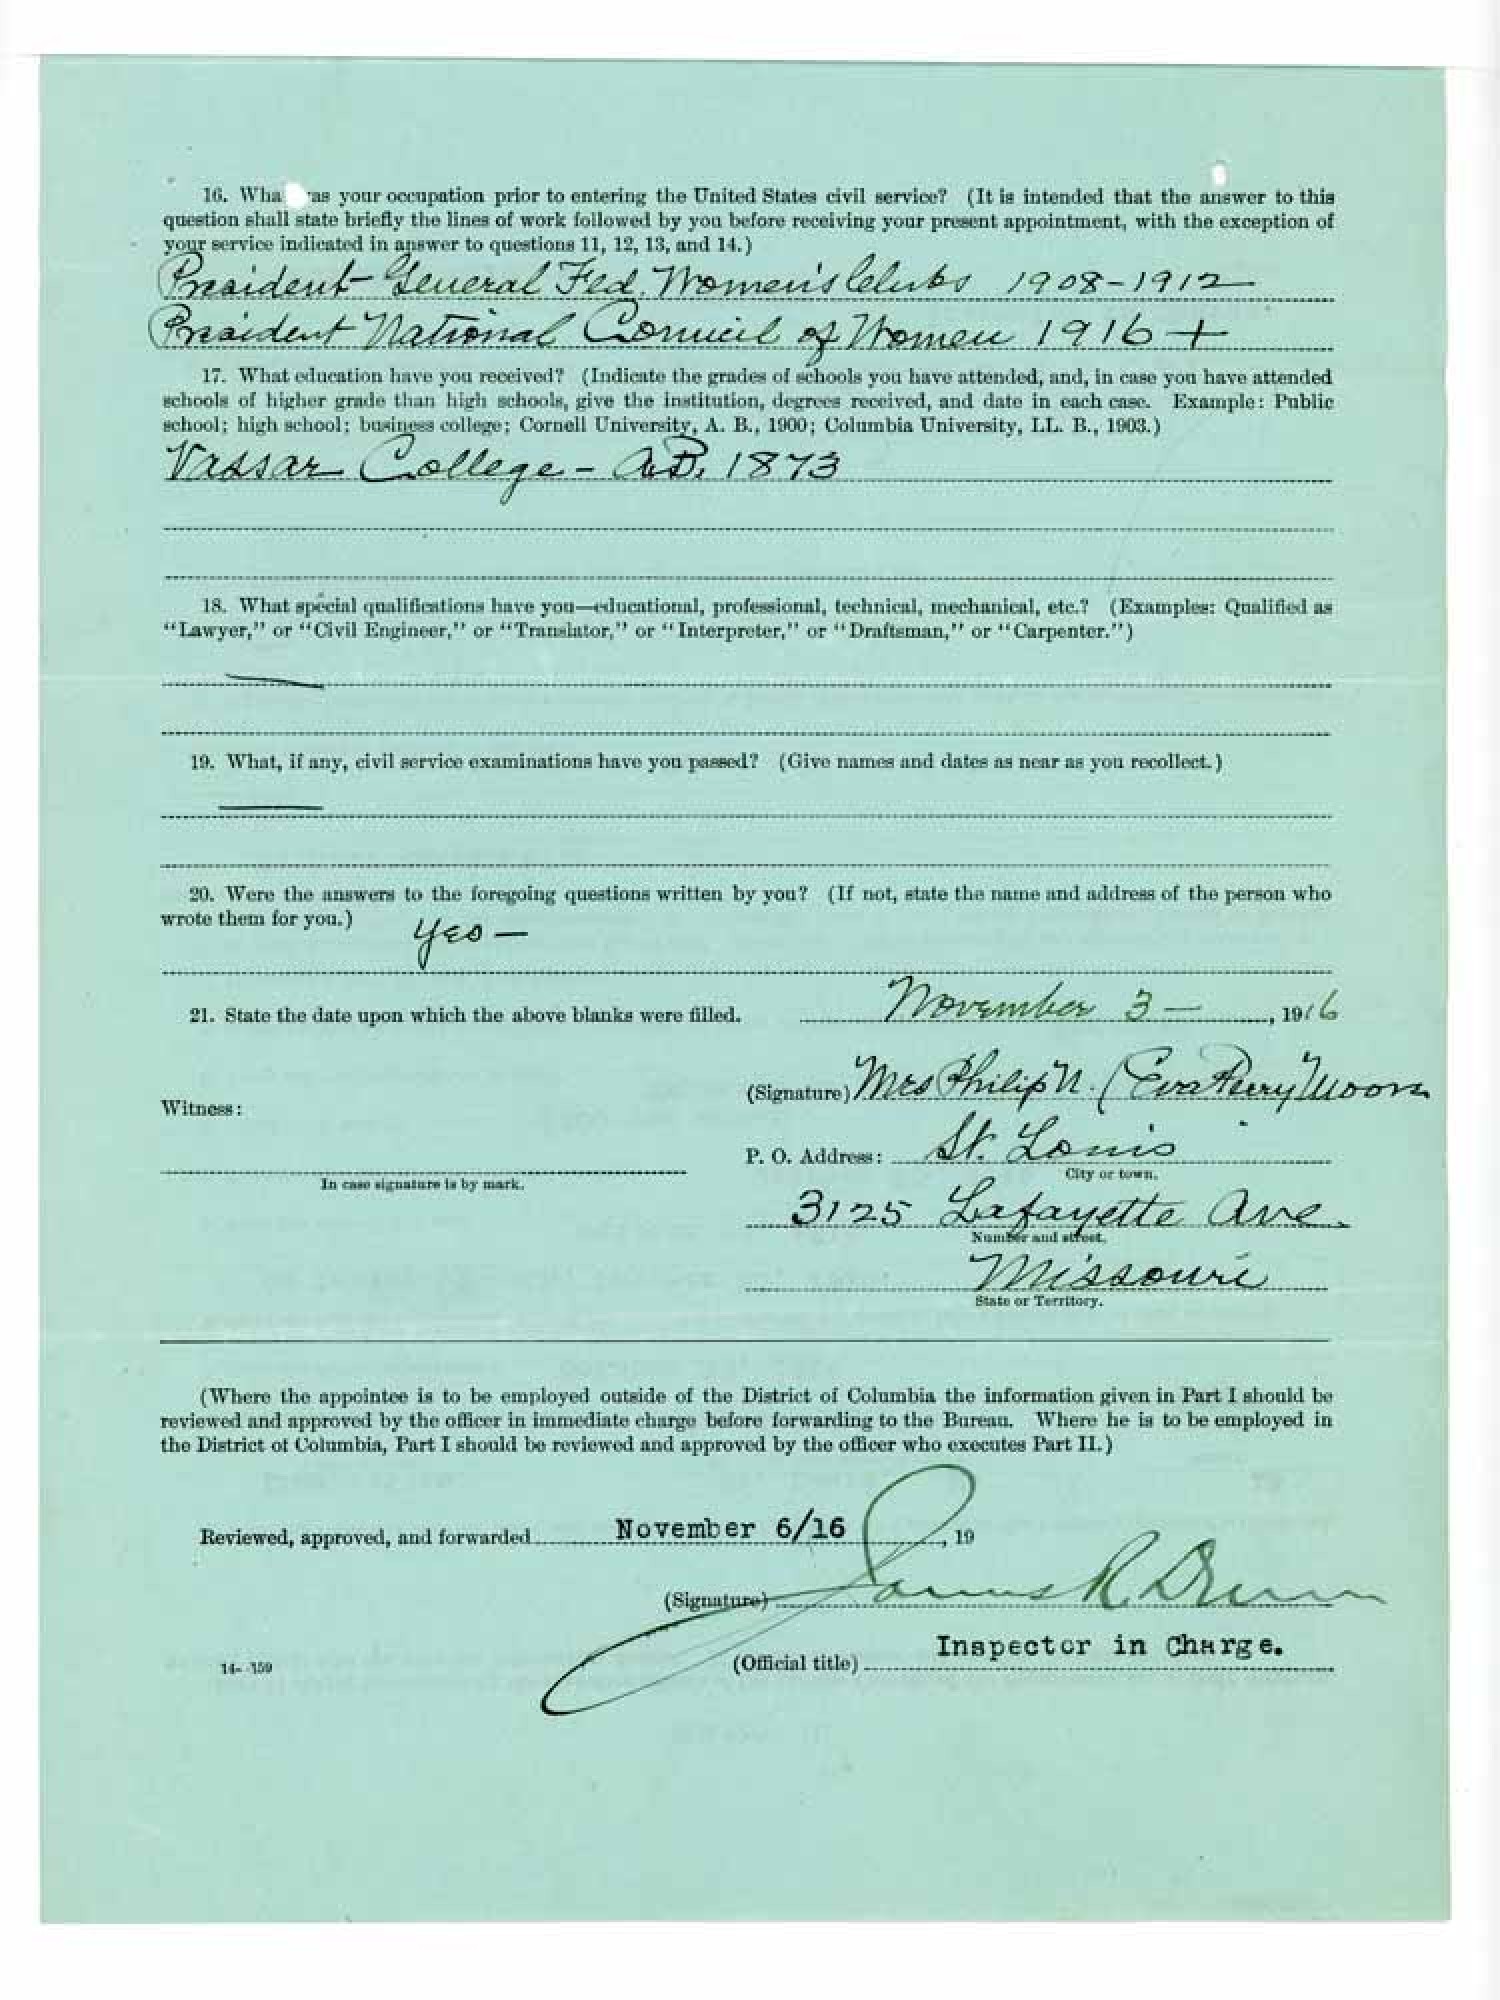 16. Wha as your occupation prior to entering the United States civil service? (It is intended that the answer to this
question shall state briefly the lines of work followed by you before receiving your present appointment, with the exception of
your service indicated in answer to questions 11, 12, 13, and 14.)
President General Fed. Women's Clubs 1908-1912
President National Council of Women 1916 +
17. What education have you received? (Indicate the grades of schools you have attended, and, in case you have attended
schools of higher grade than high schools, give the institution, degrees received, and date in each case. Example: Public
school; high school; business college; Cornell University, A. B., 1900; Columbia University, LL. B., 1903.)
Vassar College - A.B. 1873
18. What special qualifications have you—educational, professional, technical, mechanical, etc.? (Examples: Qualified as
"Lawyer," or "Civil Engineer," or "Translator," or "Interpreter," or "Draftsman," or "Carpenter.")
19. What, if any, civil service examinations have you passed? (Give names and dates as near as you recollect.)
20. Were the answers to the foregoing questions written by you? (If not, state the name and address of the person who
wrote them for you.) Yes —
21. State the date upon which the above blanks were filled. November 3 —, 1916
(Signature) Mrs Philip N. (Eva Perry) Moore
Witness:
P. O. Address: St. Louis
City or town.
In case signature is by mark.
3125 Lafayette Ave.
Number and street.
Missouri
State or Territory.
(Where the appointee is to be employed outside of the District of Columbia the information given in Part I should be
reviewed and approved by the officer in immediate charge before forwarding to the Bureau. Where he is to be employed in
the District of Columbia, Part I should be reviewed and approved by the officer who executes Part II.)
Reviewed, approved, and forwarded November 6/16, 19
(Signature) James R Dunn
(Official title) Inspector in Charge.
14-159